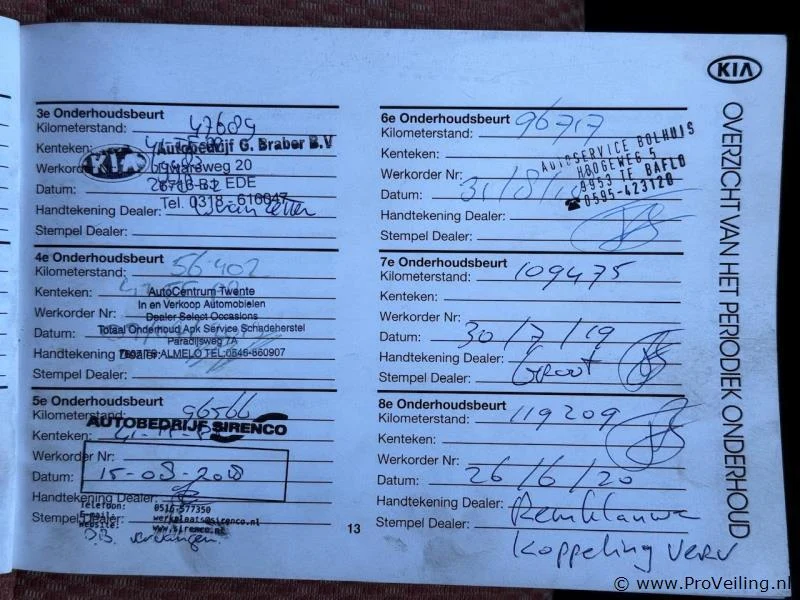 3e Onderhoudsbeurt
Kilometerstand: 47689
Kenteken:
Autobedrijf G. Braber B.V
KIA
Werkorder
weg 20
Datum: EDE
Tel. 0318 - 616047
Handtekening Dealer:
Stempel Dealer:
4e Onderhoudsbeurt
Kilometerstand: 56402
Kenteken: AutoCentrum Twente
In en Verkoop Automobielen
Werkorder Nr: Dealer Select Occasions
Datum: Totaal Onderhoud Apk Service Schadeherstel
Paradijsweg 7A
Handtekening Dealer: ALMELO TEL:0546-860907
Stempel Dealer:
5e Onderhoudsbeurt
Kilometerstand: 96566
AUTOBEDRIJF SIRENCO
Kenteken:
Werkorder Nr:
Datum: 15-08-2018
Handtekening Dealer:
Telefoon: 0516-577350
Stempel Dealer:
E-mail: werkplaats@sirenco.nl
Website: www.sirenco.nl
D.B. vervangen.
13
6e Onderhoudsbeurt
Kilometerstand: 96717
Kenteken:
AUTOSERVICE BOLHUIS
Werkorder Nr: HOOGEWEG 5
9953 TE BAFLO
Datum: 31/8/18
0595-423120
Handtekening Dealer:
Stempel Dealer:
7e Onderhoudsbeurt
Kilometerstand: 109475
Kenteken:
Werkorder Nr:
Datum: 30/7/19
Handtekening Dealer:
Stempel Dealer: Groot
8e Onderhoudsbeurt
Kilometerstand: 119209
Kenteken:
Werkorder Nr:
Datum: 26/6/20
Handtekening Dealer:
Stempel Dealer:
Koppeling verv
KIA
OVERZICHT VAN HET PERIODIEK ONDERHOUD
© www.ProVeiling.nl